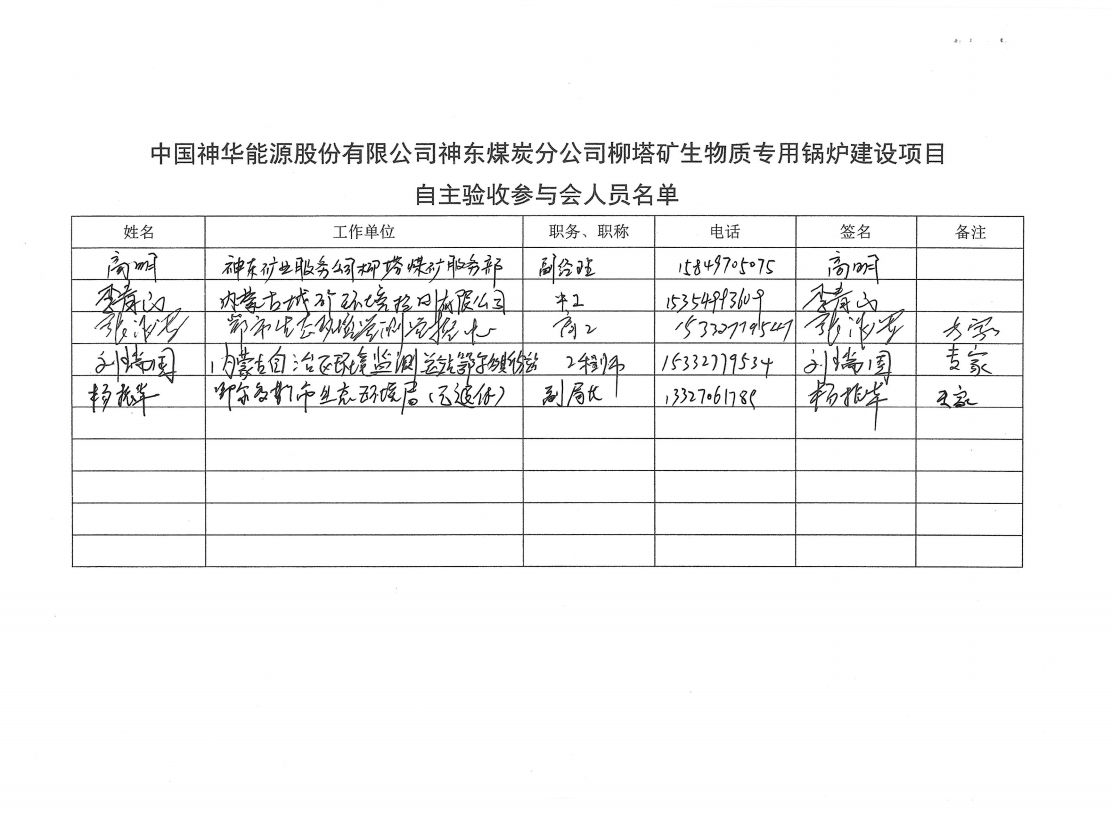 中国神华能源股份有限公司神东煤炭分公司柳塔矿生物质专用锅炉建设项目
自主验收参与会人员名单
姓名 工作单位 职务、职称 电话 签名 备注
高明 神东矿业服务公司柳塔煤矿服务部 副经理 15849705075 高明
李 内蒙古城矿环境检测有限公司 中工 15354993609 李
张 鄂市生态环境监测监控中心 高工 张 专家
刘瑞国 内蒙古自治区环境监测总站鄂尔多斯分站 工程师 15332779534 刘瑞国 专家
杨 鄂尔多斯市生态环境局(已退休) 副局长 13327061789 杨 专家